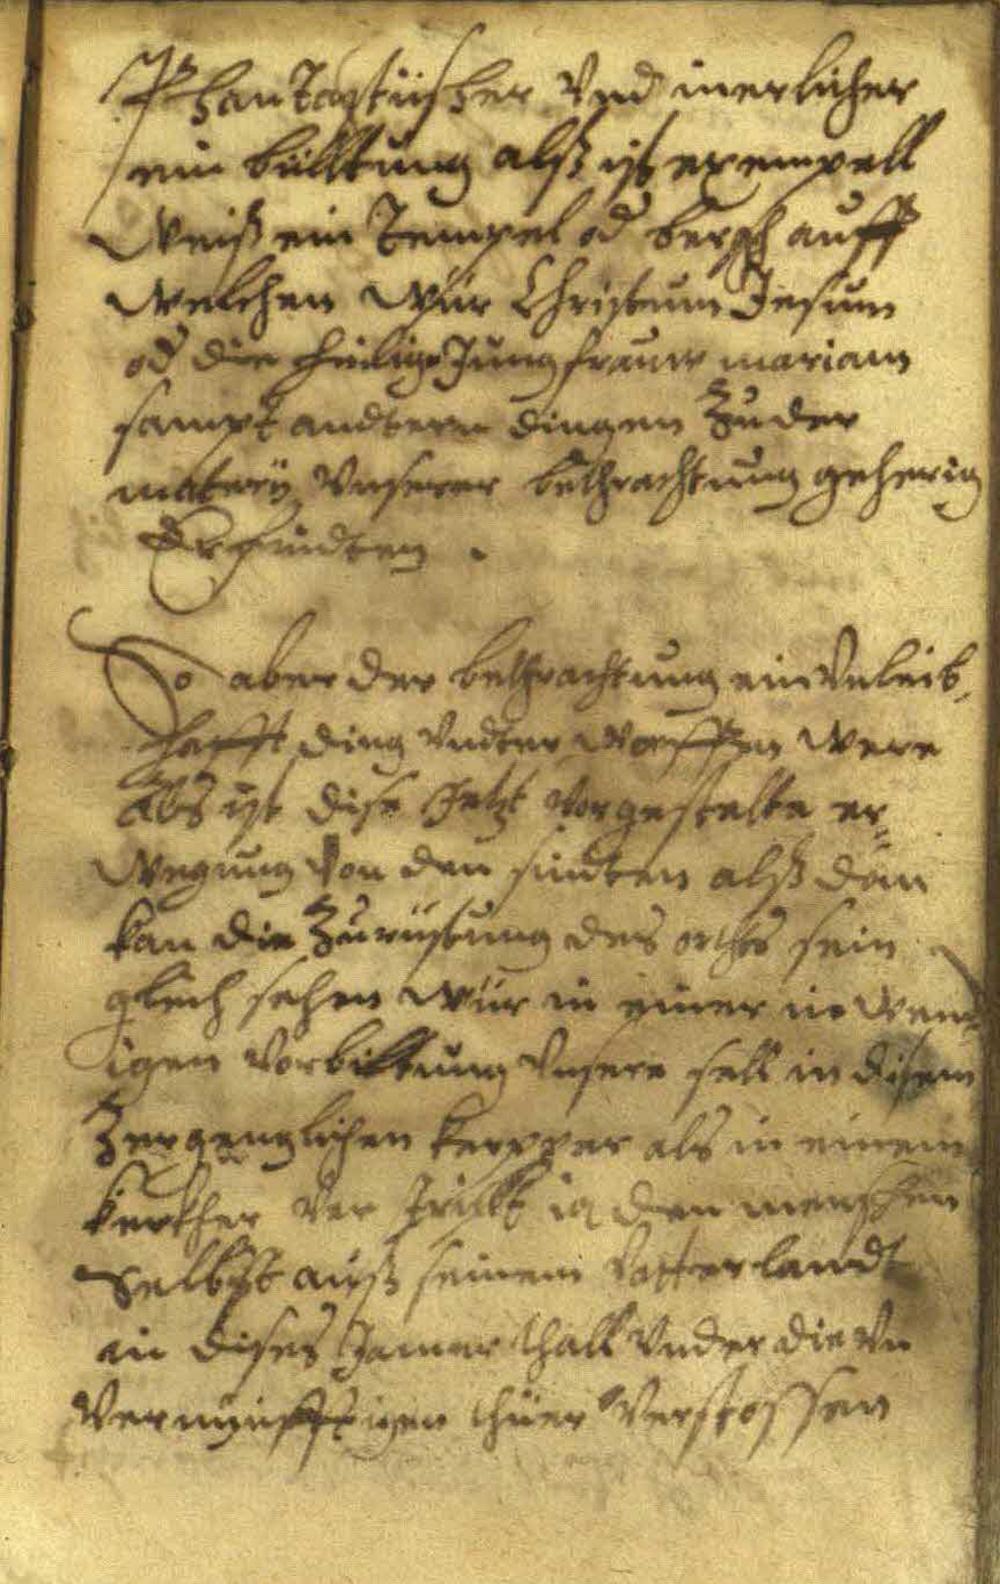 Phantastüscher Vnd inerlicher
ein bülltung alß ist exempell
Weiß ein Tempel od bergh auff
Welchen Wür Christum Jesum
od die heilige Jungfrauw mariam
sampt andtern dingen Zu der
materÿ Vnserer bethrachtung geherig
Erfundten .
So aber der bethrachtung ein Vnleib,
hafft ding Vndter Worffen Were
Als ist dise Jetzt Vorgestelte er¬
Wegung Von den sündten alß dan
kan die Zurüstung des orths sein
gleich sehen Wür in einer in Wen¬
igen Vorbilttung Vnsere sell in disem
Zergenglichen kerpper als in einem
kerkher Ver strikt ia den menschen
Selbst auß seinem Vatterlandt
in dises Jamer thall Vnder die Vn
Vernünfftigen thüer Verstossen